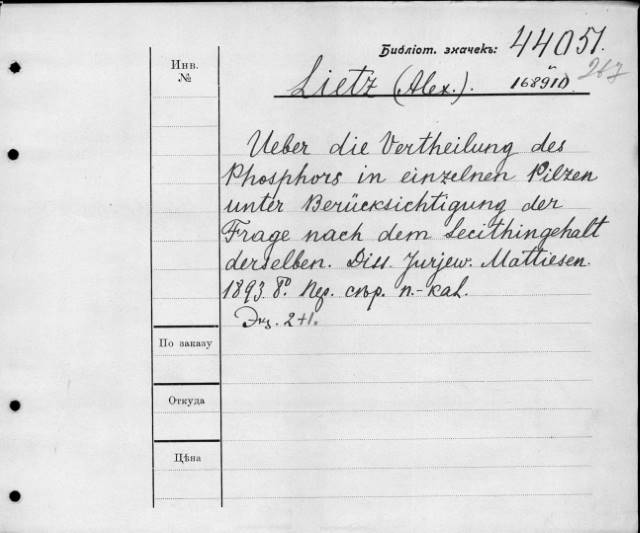 Библіот. значекъ: 44051.
Инв.
№
и
267
Lietz (Alex.). 16891D.
Ueber die Vertheilung des
Phosphors in einzelnen Pilzen
unter Berücksichtigung der
Frage nach dem Lecithingehalt
derselben. Diss. Jurjew. Mattiesen.
1893. 8º. Пер. стр.
Экз. 2+1.
По заказу
Откуда
Цѣна